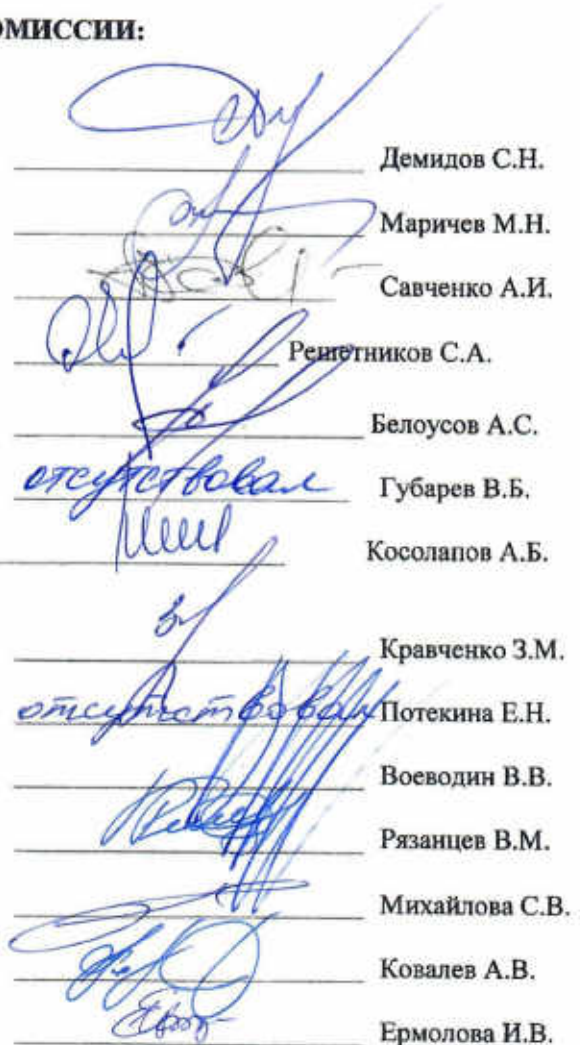 ОМИССИИ:
Демидов С.Н.
Маричев М.Н.
Савченко А.И.
Решетников С.А.
Белоусов А.С.
отсутствовал Губарев В.Б.
Косолапов А.Б.
Кравченко З.М.
отсутствовал Потекина Е.Н.
Воеводин В.В.
Рязанцев В.М.
Михайлова С.В.
Ковалев А.В.
Ермолова И.В.